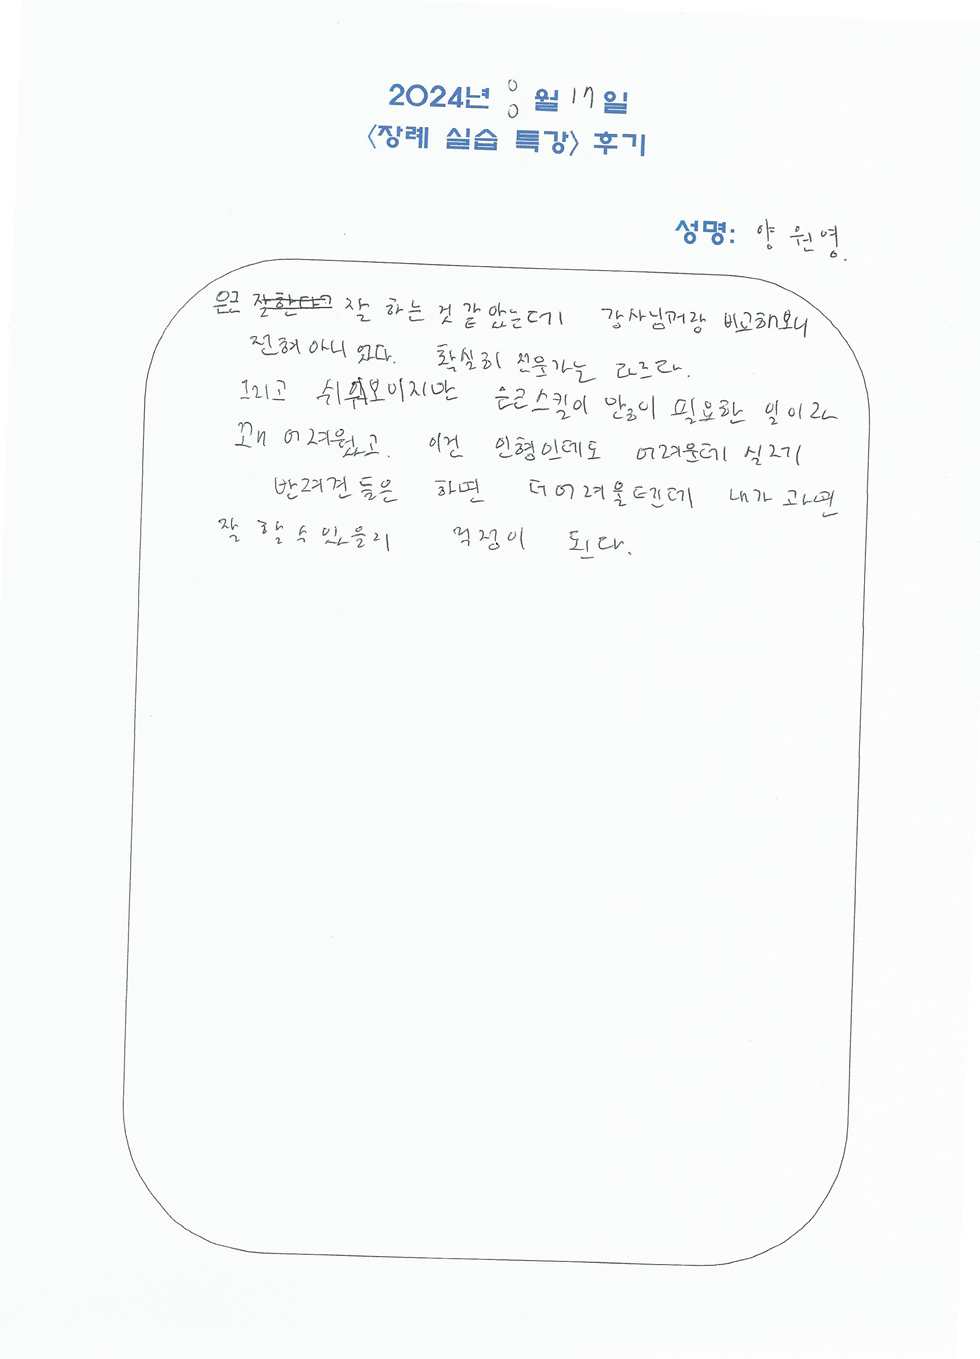 2024년 8월 17일
<장례 실습 특강> 후기
성명: 양원영.
은근 잘한다고 잘 하는 것 같았는데 강사님꺼랑 비교해보니
전혀 아니었다. 확실히 전문가는 다르다.
그리고 쉬워보이지만 은근 스킬이 많이 필요한 일이라
꽤 어려웠고. 이건 인형인데도 어려운데 실제
반려견들은 하면 더 어려울텐데 내가 과연
잘 할 수 있을지 걱정이 된다.